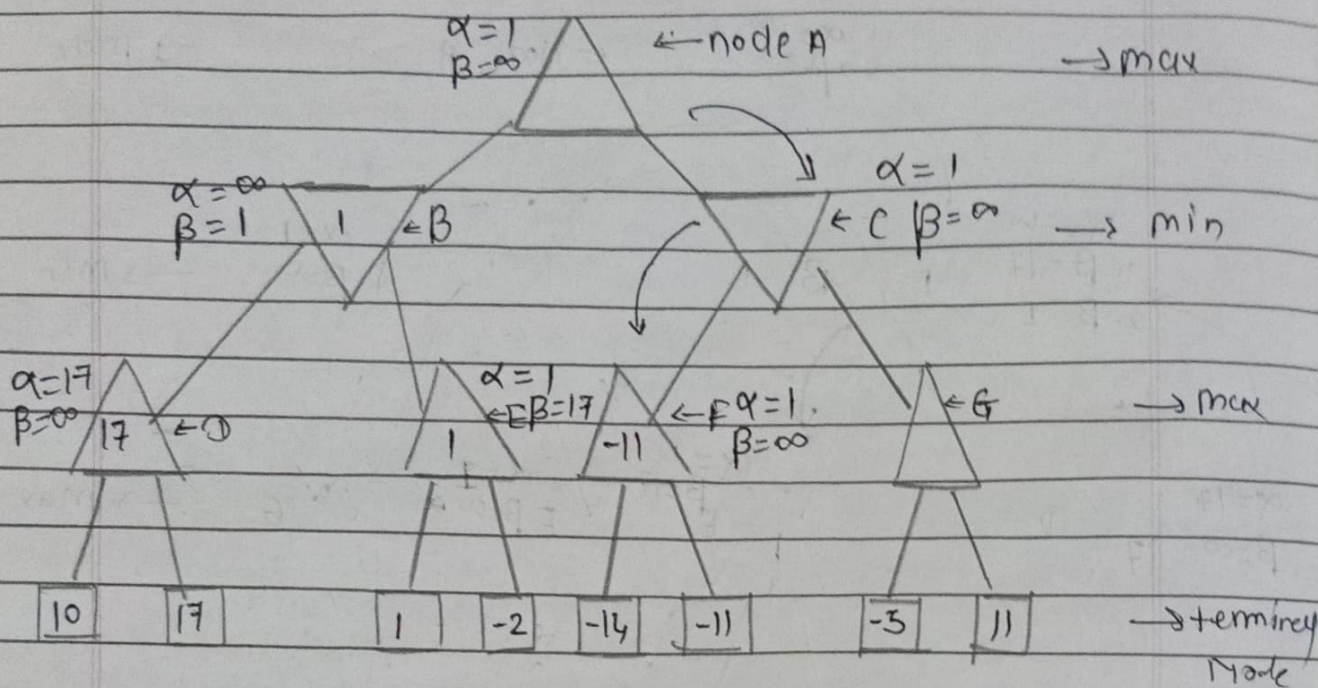 α=1 ←node A
β=∞ →max
α=∞ α=1
β=1 1 ←B ←C β=∞ → min
α=17 α=1
β=∞ 17 ←D 1 ←E β=17 -11 ←F α=1. ←G →max
β=∞
10 17 1 -2 -14 -11 -3 11 →terminey
Node